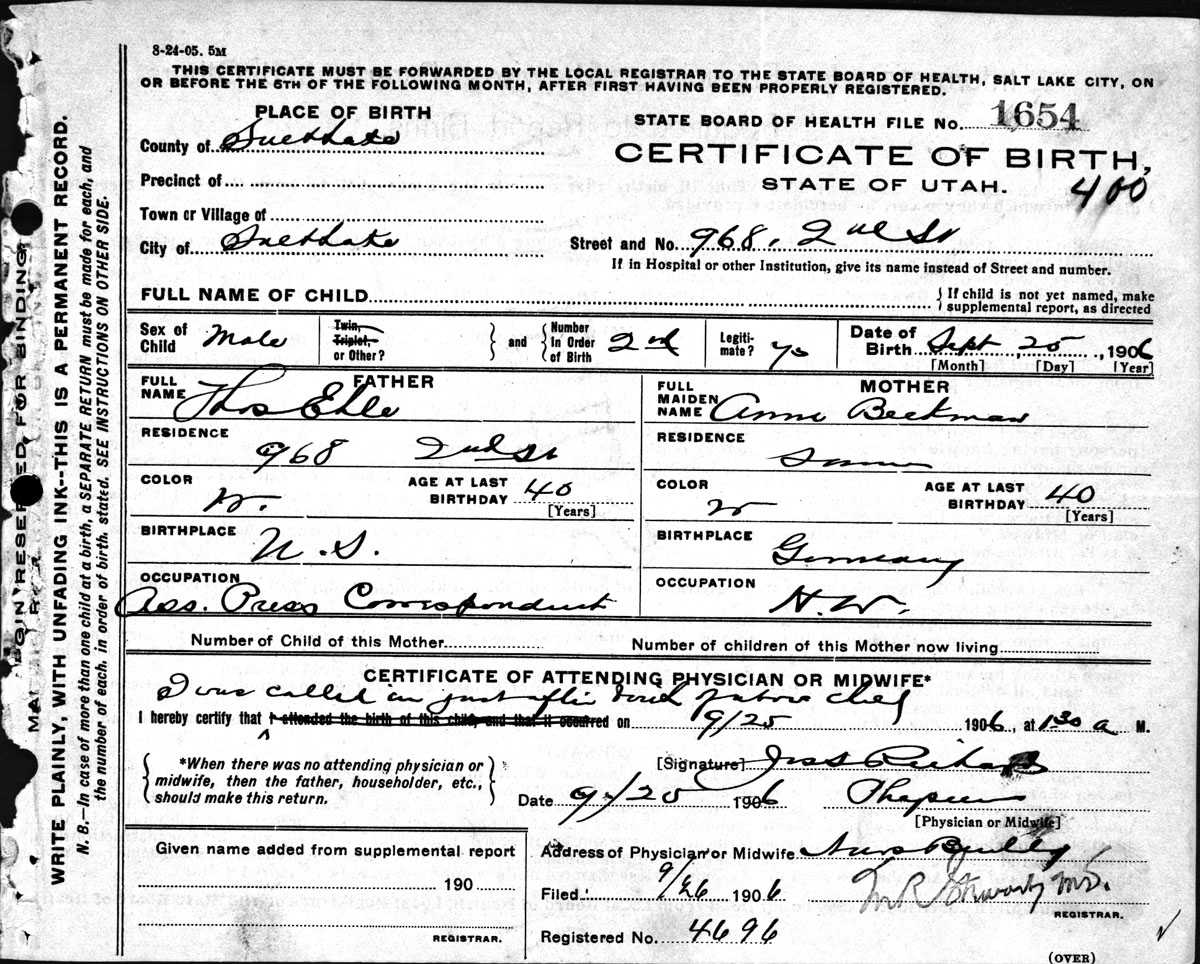 8-24-05. 5M
THIS CERTIFICATE MUST BE FORWARDED BY THE LOCAL REGISTRAR TO THE STATE BOARD OF HEALTH, SALT LAKE CITY, ON
OR BEFORE THE 5TH OF THE FOLLOWING MONTH, AFTER FIRST HAVING BEEN PROPERLY REGISTERED.
PLACE OF BIRTH
STATE BOARD OF HEALTH FILE No. 1654
County of Salt Lake
CERTIFICATE OF BIRTH,
STATE OF UTAH.
400
Precinct of
Town or Village of
City of Salt Lake
Street and No. 968. 2nd St
If in Hospital or other Institution, give its name instead of Street and number.
FULL NAME OF CHILD
If child is not yet named, make
supplemental report, as directed
Sex of Child Male
Twin, Triplet, or Other?
and
Number In Order of Birth 2nd
Legiti- mate? ys
Date of Birth Sept 25, 1906
[Month] [Day] [Year]
FATHER
FULL NAME Thos Ehle
RESIDENCE
968 2nd St
COLOR W.
AGE AT LAST BIRTHDAY 40
[Years]
BIRTHPLACE
U. S.
OCCUPATION
Ass. Press Correspondent
MOTHER
FULL MAIDEN NAME Anne Beckman
RESIDENCE
COLOR W
AGE AT LAST BIRTHDAY 40
[Years]
BIRTHPLACE
Germany
OCCUPATION
H. W.
Number of Child of this Mother
Number of children of this Mother now living
CERTIFICATE OF ATTENDING PHYSICIAN OR MIDWIFE*
I was called in just after
I hereby certify that I attended the birth of this child, and that it occurred on 9/25 1906, at 1 30 a M.
*When there was no attending physician or
midwife, then the father, householder, etc.,
should make this return.
[Signature]
Date 9/25 1906
[Physician or Midwife]
Given name added from supplemental report
190
REGISTRAR.
Address of Physician or Midwife
Filed 9/26 1906
REGISTRAR.
Registered No. 4696
(OVER)
MARGIN RESERVED FOR BINDING
WRITE PLAINLY, WITH UNFADING INK--THIS IS A PERMANENT RECORD.
N. B.—In case of more than one child at a birth, a SEPARATE RETURN must be made for each, and
the number of each, in order of birth, stated. SEE INSTRUCTIONS ON OTHER SIDE.